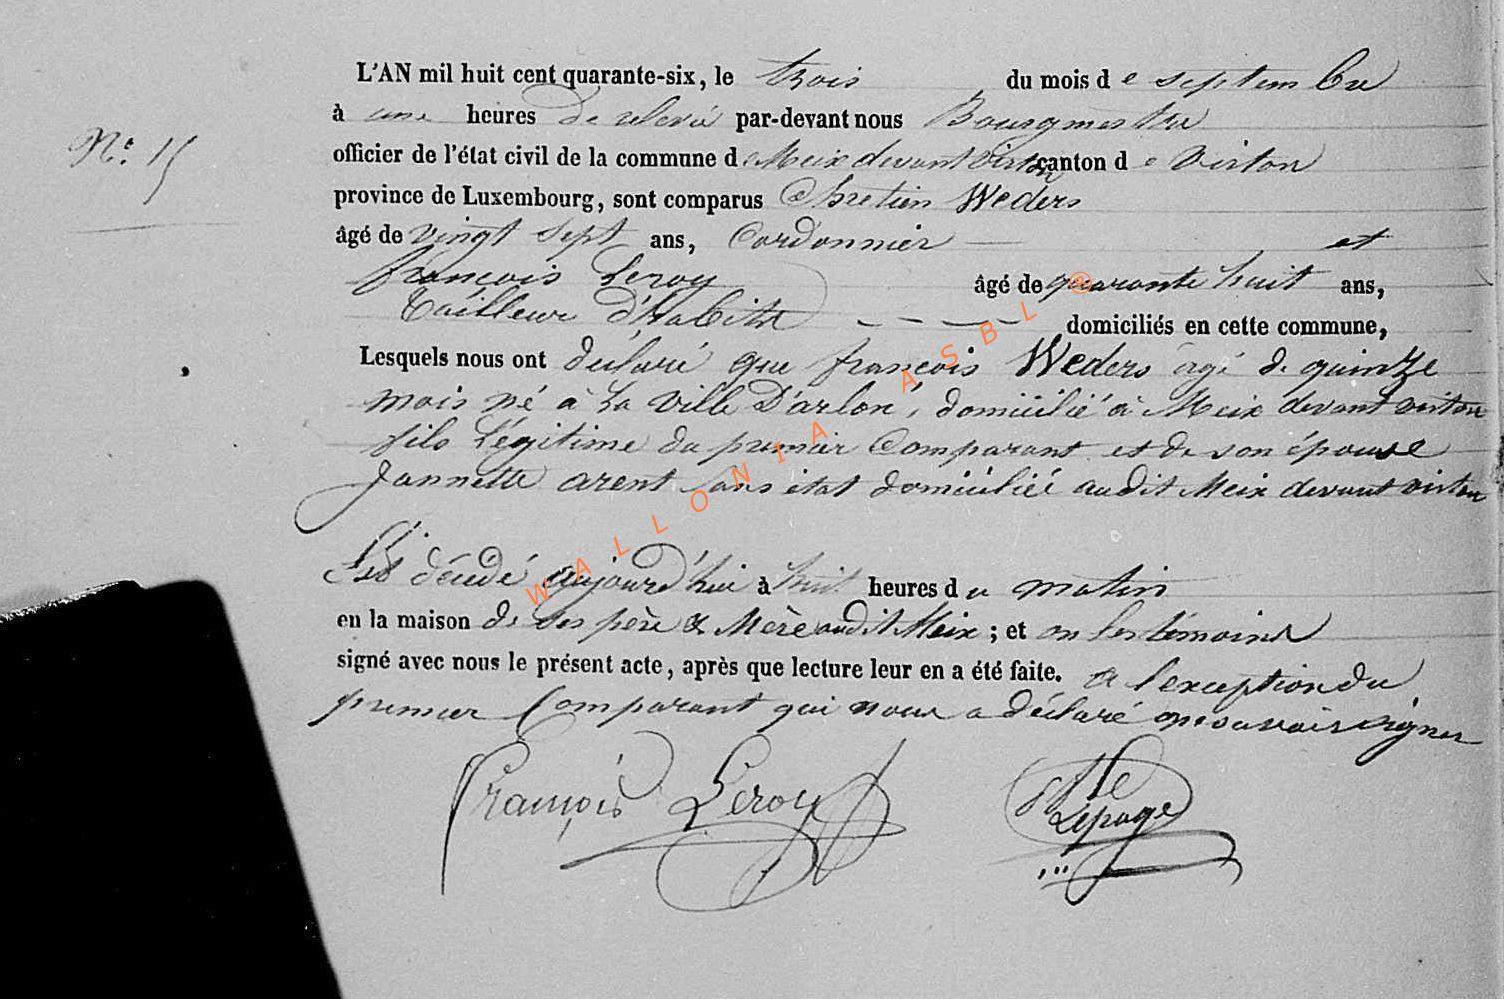 L'AN mil huit cent quarante-six, le trois du mois de septembre
à une heures de relevé par-devant nous Bourgmestre
N° 15
officier de l'état civil de la commune de Meix devant virton canton de virton
province de Luxembourg, sont comparus Chretien Weders
âgé de vingt sept ans, Cordonnier et
françois Leroy âgé de quarante huit ans,
tailleur d'habits domiciliés en cette commune,
Lesquels nous ont déclaré que françois Weders agé de quinze
mois né à la ville D'arlon, domicilié à Meix devant virton
fils Légitime du premier Comparant et de son épouse
Jannette arent sans état domiciliée audit Meix devant virton
Est décédé aujourd'hui à huit heures du matin
en la maison de ses père & Mère audit Meix ; et on les témoins
signé avec nous le présent acte, après que lecture leur en a été faite. a l'exception du
premier Comparant qui nous a déclaré ne savoir signer
François Leroy
Lepage
WALLONIA ASBL ®